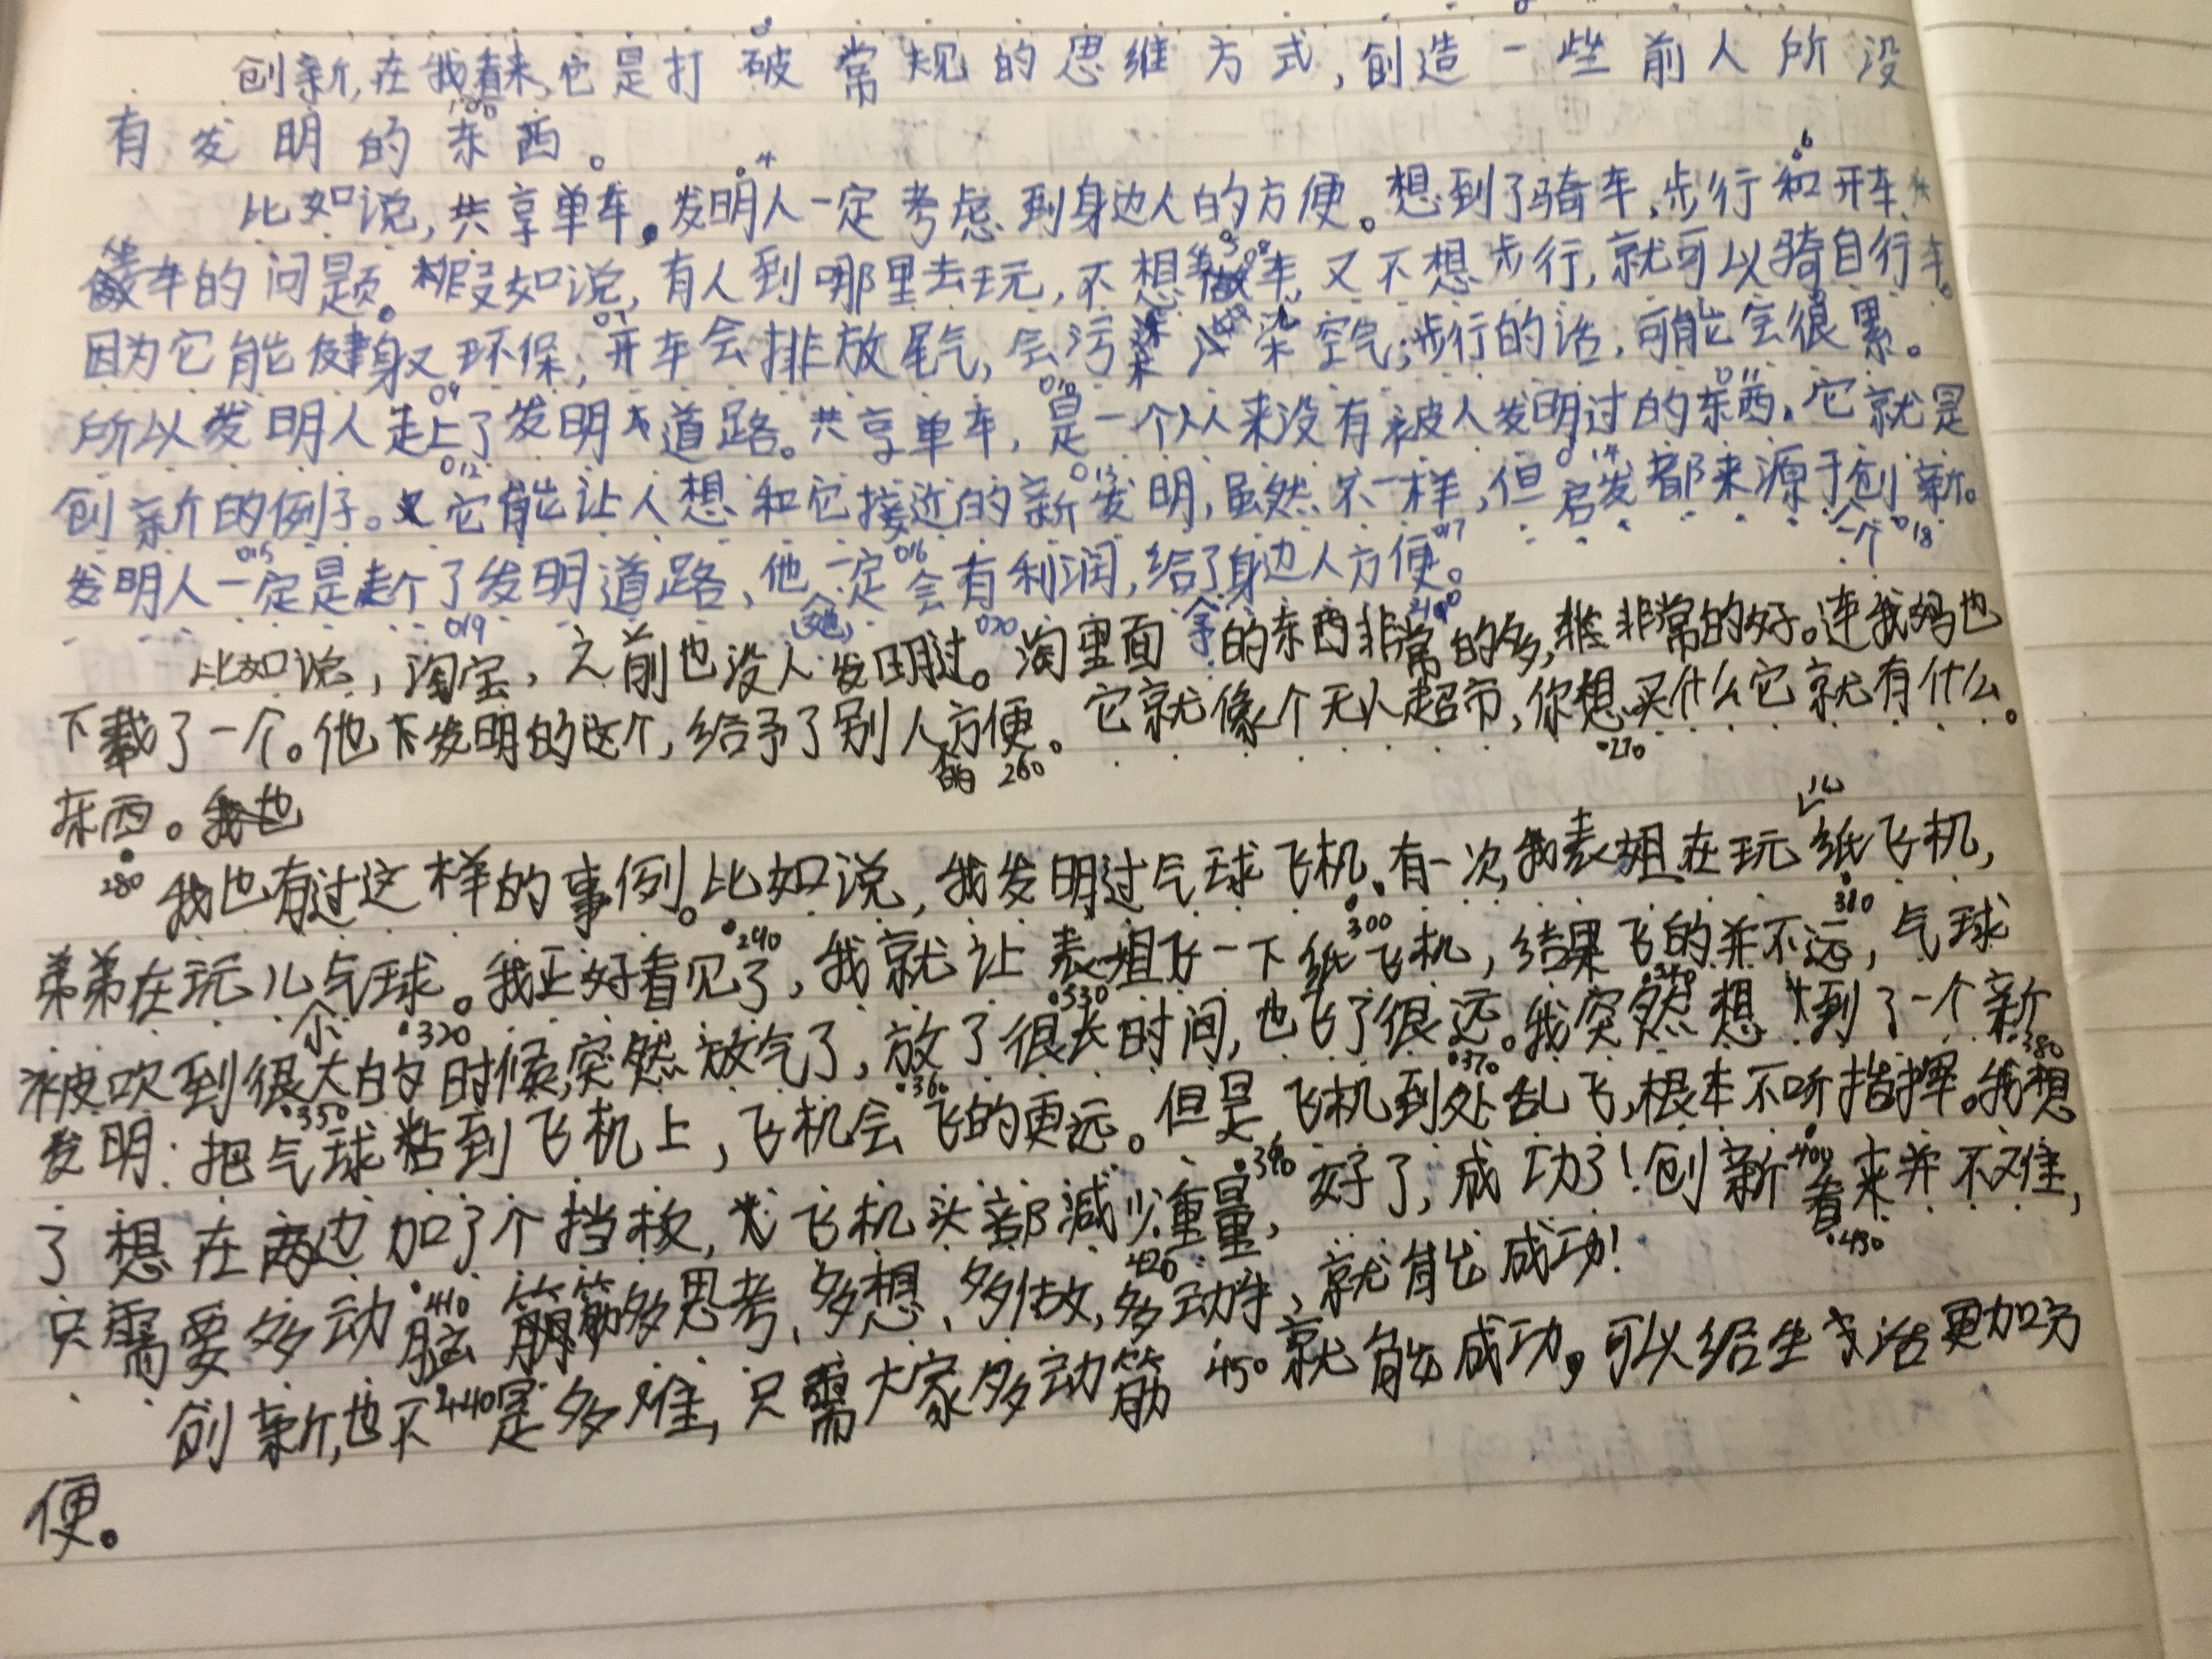 创新,在我看来,它是打破常规的思维方式,创造一些前人所没
有发明的东西。
比如说,共享单车。发明人一定考虑到身边人的方便。想到了骑车,步行和开车
坐车的问题。假如说,有人到哪里去玩,不想坐车,又不想步行,就可以骑自行车。
因为它能健身又环保;开车会排放尾气,会污染空气;步行的话,可能会很累。
所以发明人走上了发明道路。共享单车,是一个从来没有被人发明过的东西。它就是
创新的例子。它能让人想和它接近的新发明,虽然不一样,但启发都来源于创新。
发明人一定是走个了发明道路,他一定会有利润,给了身边人一个方便。
比如说,淘宝,之前也没人发明过。淘里面的东西非常的多,非常的好。连我妈也
下载了一个。他发明的这个,给予了别人方便。它就像个无人超市,你想买什么它就有什么。
东西。
我也有过这样的事例。比如说,我发明过气球飞机。有一次,我表姐在玩纸飞机,
弟弟在玩儿气球。我正好看见了,我就让表姐飞一下纸飞机,结果飞的并不远,气球
被吹到很大的时候,突然放气了,放了很长时间,也飞了很远。我突然想到了一个新
发明:把气球粘到飞机上,飞机会飞的更远。但是,飞机到处乱飞,根本不听指挥。我想
了想在两边加了个挡板,飞机头部减少重量,好了,成功了!创新看来并不难,
只需要多动脑筋多思考、多想、多做,多动手,就能成功!
创新,也不是多难,只需大家多动筋就能成功,可以给生活更加方
便。